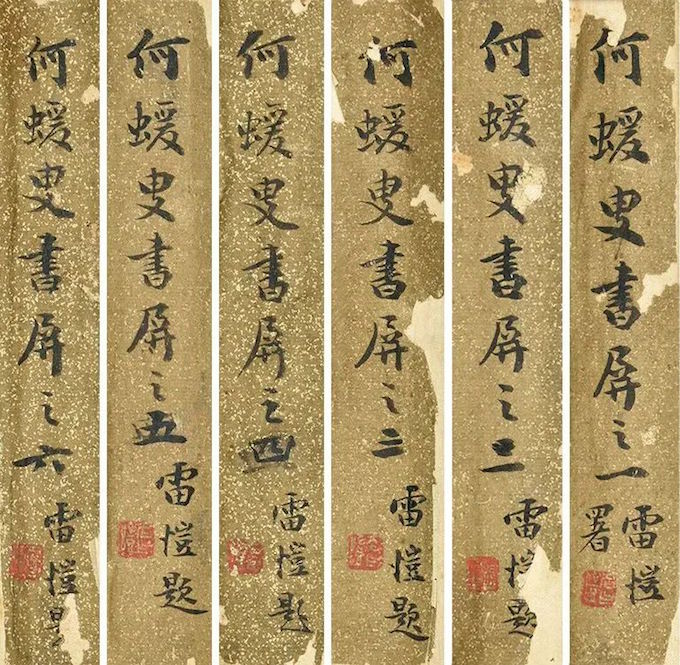 何蝯叟書屏之一
雷愷
署
何蝯叟書屏之二
雷愷題
何蝯叟書屏之三
雷愷題
何蝯叟書屏之四
雷愷題
何蝯叟書屏之五
雷愷題
何蝯叟書屏之六
雷愷題